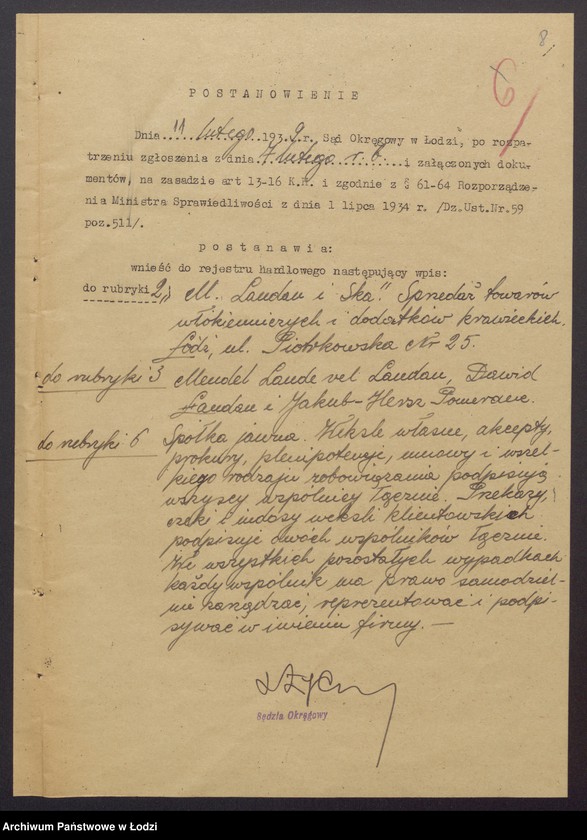 8
6
POSTANOWIENIE
Dnia 11 lutego 1939 r. Sąd Okręgowy w Łodzi, po rozpa-
trzeniu zgłoszenia z dnia 7 lutego r. b. i załączonych doku-
mentów, na zasadzie art 13-16 K.H. i zgodnie z § 61-64 Rozporządze-
nia Ministra Sprawiedliwości z dnia 1 lipca 1934 r. /Dz.Ust.Nr.59
poz.511/.
postanawia:
wnieść do rejestru handlowego następujący wpis:
do rubryki 2 "M. Landau i Ska". Sprzedaż towarów
włókienniczych i dodatków krawieckich.
Łódź, ul. Piotrkowska Nr 25.
do rubryki 3 Mendel Lande vel Landau, Dawid
Landau i Jakub-Hersz Pomeranc.
do rubryki 6 Spółka jawna. Weksle własne, akcepty,
prokury, plenipotencje, umowy i wszel-
kiego rodzaju zobowiązania podpisują
wszyscy wspólnicy łącznie. Przekazy,
czeki i indosy weksli klientowskich
podpisuje dwóch wspólników łącznie.
We wszystkich pozostałych wypadkach
każdy wspólnik ma prawo samodziel-
nie zarządzać, reprezentować i podpi-
sywać w imieniu firmy. —
Sędzia Okręgowy
Archiwum Państwowe w Łodzi